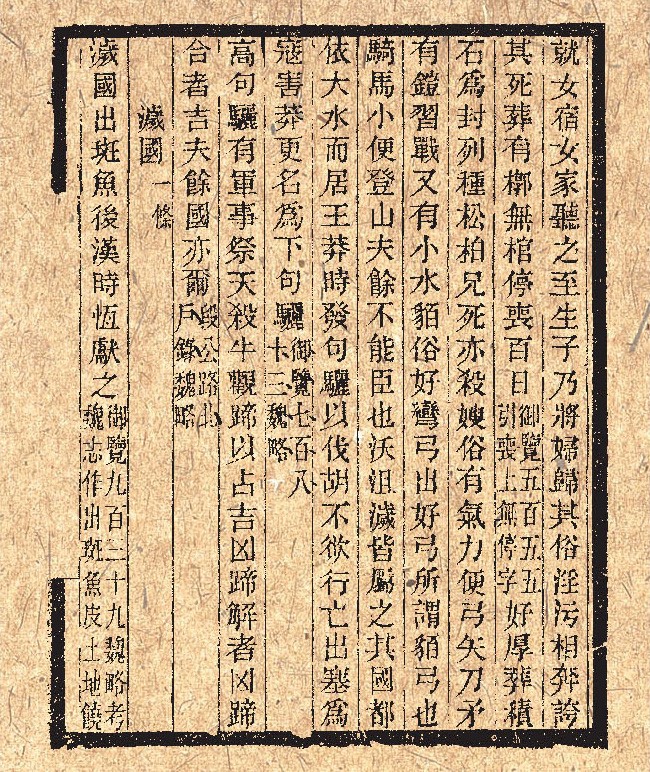 就女宿女家聽之至生子乃將婦歸其俗淫污相奔誇
其死葬有槨無棺停喪百日御覽五百五五引喪上無停字好厚葬積
石為封列種松柏兄死亦殺嫂俗有氣力便弓矢刀矛
有鎧習戰又有小水貊俗好彎弓出好弓所謂貊弓也
騎馬小便登山夫餘不能臣也沃沮濊皆屬之其國都
依大水而居王莽時發句驪以伐胡不欲行亡出塞為
寇害莽更名為下句驪御覽七百八十三魏略
高句驪有軍事祭天殺牛觀蹄以占吉凶蹄解者凶蹄
合者吉夫餘國亦爾段公路北戶錄魏略
濊國一條
濊國出斑魚後漢時恆獻之御覽九百三十九魏略考魏志作出斑魚皮土地饒